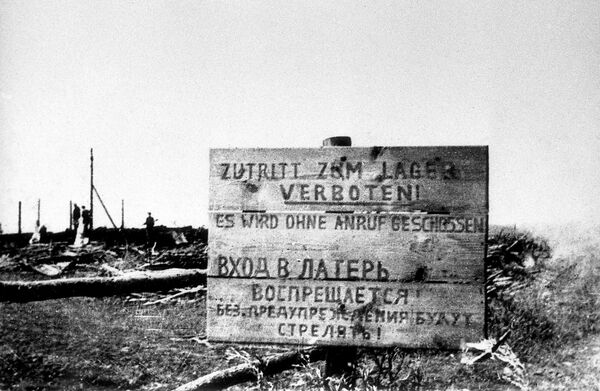 ZUTRITT ZRM LAGER
VERBOTEN!
ES WIRD OHNE ANRUF GESCHOSSEN
ВХОД В ЛАТЕРЬ
ВОСПРЕЩАЕТСЯ!
БЕЗ ПРЕДУПРЕЖДЕНИЯ БУДУТ
СТРЕЛЯТЬ!